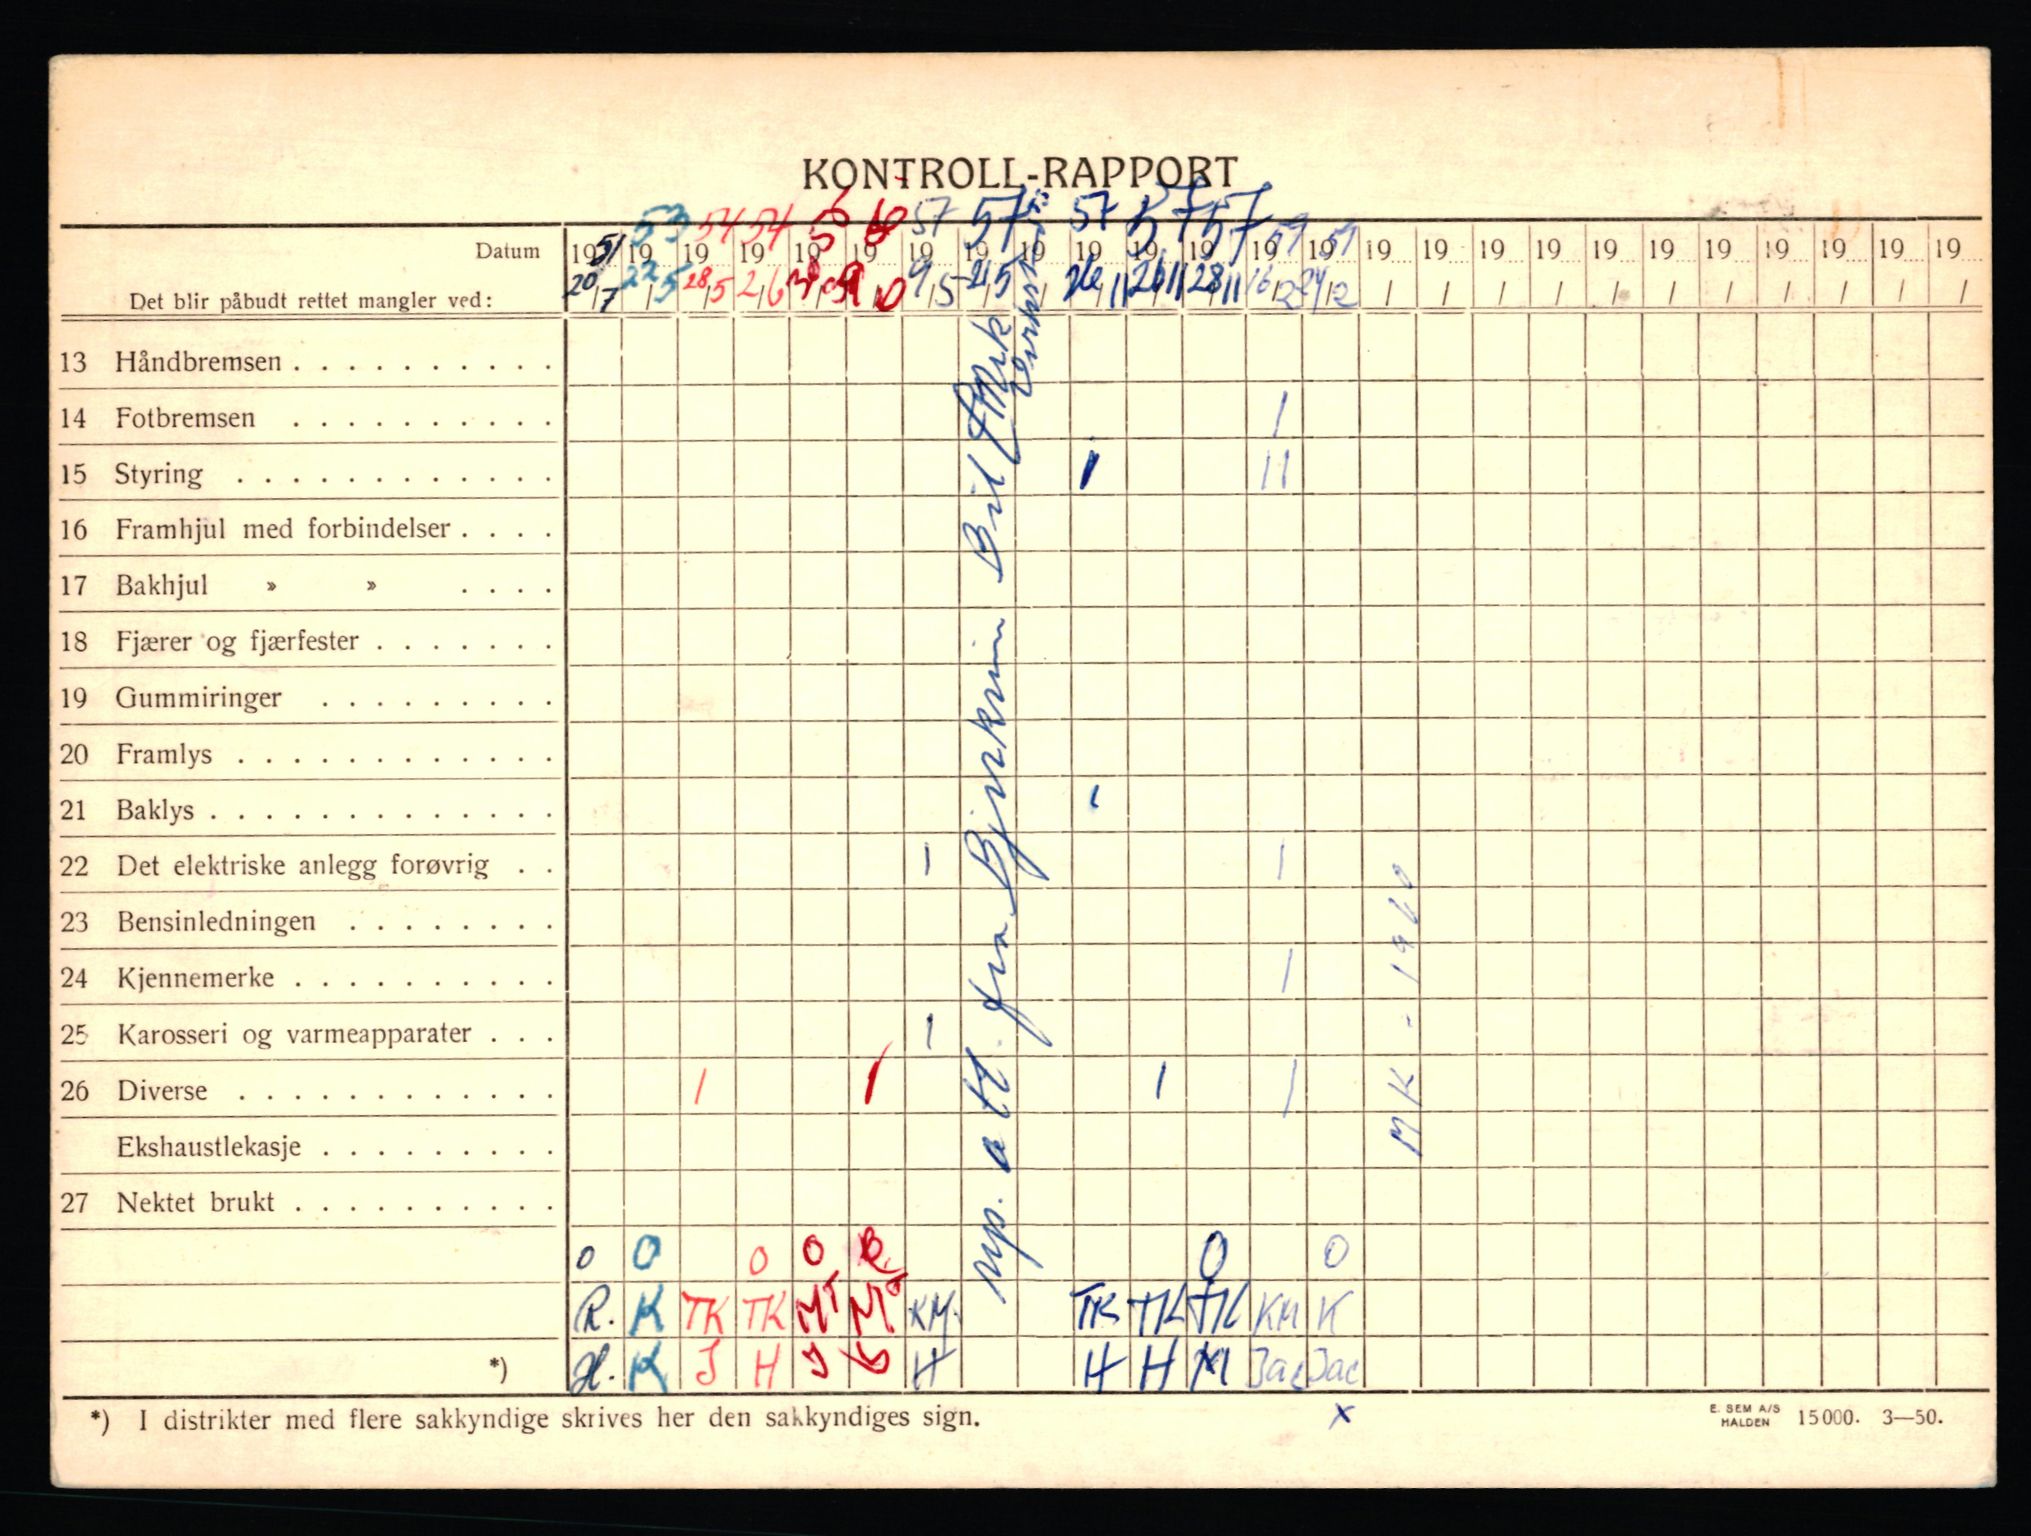 KONTROLL-RAPPORT
53 54 54 57 57 57 57 57
Datum 1951 19 19 19 19 19 19 19 19 19 19 19 19 19 19 19 19 19 19 19 19 19 19 19 19
Det blir påbudt rettet mangler ved: 20/7 22/5 28/5 2/6 9/5 21/5 26/11 26/11 28/11 16/12 24/12 / / / / / / / / / / /
13 Håndbremsen . . . . . . . . . .
14 Fotbremsen . . . . . . . . . . 1
15 Styring . . . . . . . . . . . . 1 11
16 Framhjul med forbindelser . . . .
17 Bakhjul » » . . . .
18 Fjærer og fjærfester . . . . . . .
19 Gummiringer . . . . . . . . .
20 Framlys . . . . . . . . . . . .
21 Baklys . . . . . . . . . . . . . 1
22 Det elektriske anlegg forøvrig . . 1 1
23 Bensinledningen . . . . . . . .
24 Kjennemerke . . . . . . . . . . 1
25 Karosseri og varmeapparater . . . 1
26 Diverse . . . . . . . . . . . . 1 1 1 1
Ekshaustlekasje . . . . . . . . .
27 Nektet brukt . . . . . . . . . .
rep. att. fra Bjerkreim Bil
MK - 1960
0 0 0 0 0 0
R. K TK TK MT KM. TK TK TK KM K
H. K J H H H H Jac Jac
*)
*) I distrikter med flere sakkyndige skrives her den sakkyndiges sign.
x
E. SEM A/S
HALDEN 15000. 3—50.